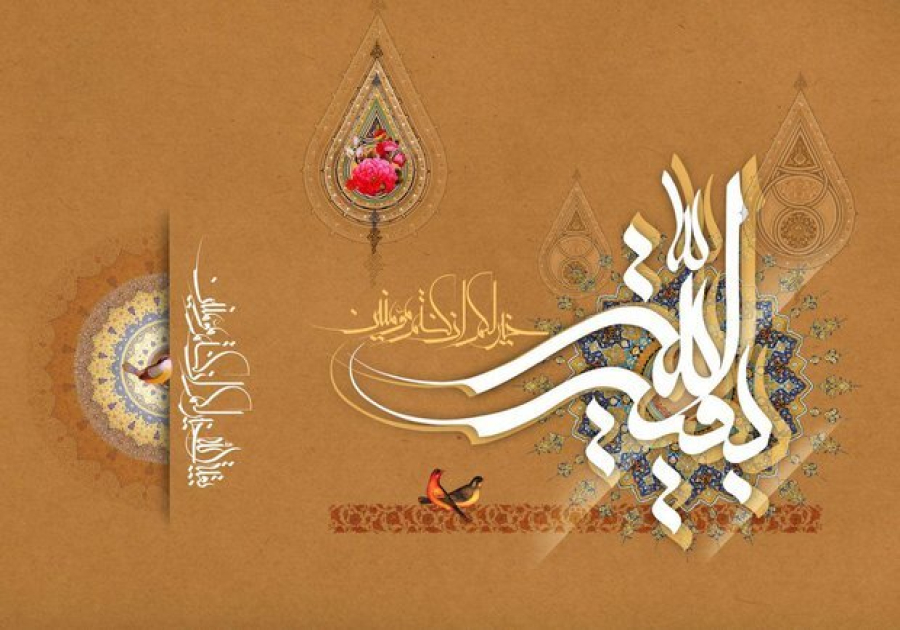 بقیة الله
خیر لکم ان کنتم مؤمنین
بقیة الله خیر لکم ان کنتم مؤمنین